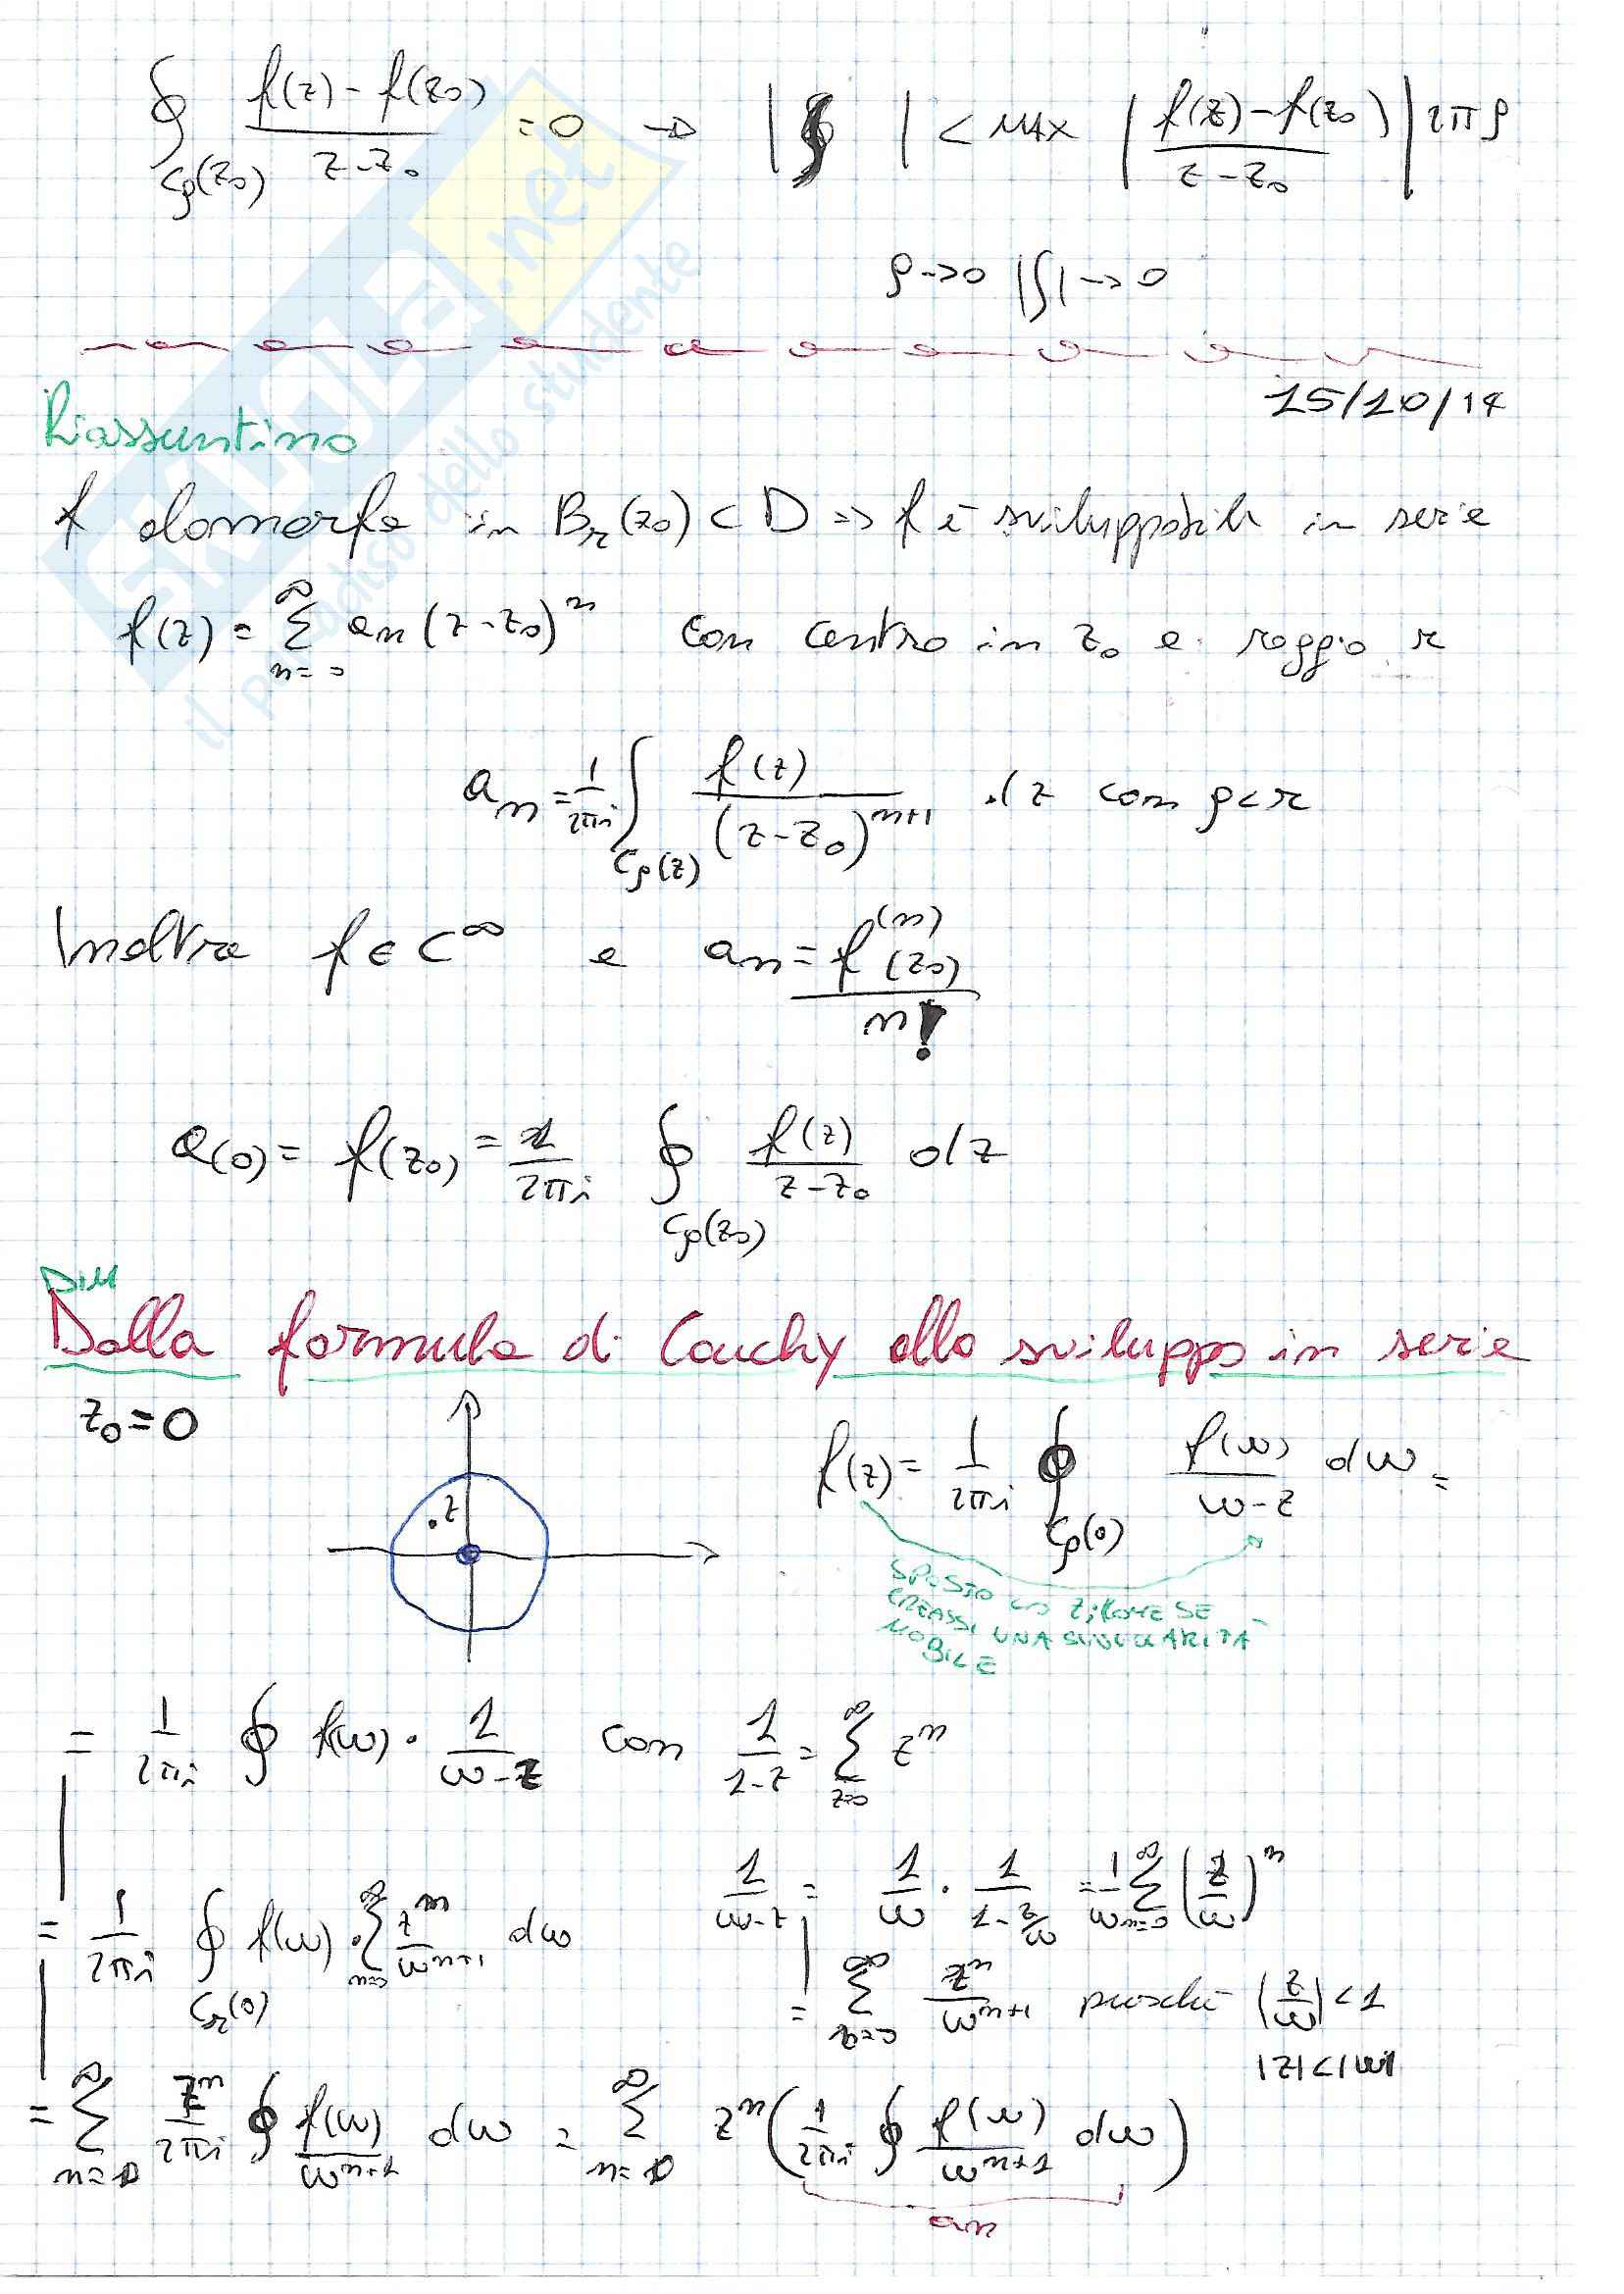 ∮_{Cρ(z₀)} (f(z) - f(z₀))/(z - z₀) = 0 → |∮| < MAX |(f(z) - f(z₀))/(z - z₀)| 2πρ
ρ → 0 |∫| → 0
15/10/14
Riassuntino
f olomorfa in B_r(z₀) ⊂ D => f è sviluppabile in serie
f(z) = Σ_{n=0}^{∞} a_n (z - z₀)^n con centro in z₀ e raggio r
a_n = 1/(2πi) ∫_{Cρ(z)} f(z)/(z - z₀)^{n+1} dz con ρ < r
Inoltre f ∈ C^∞ e a_n = f^{(n)}(z₀)/n!
a(0) = f(z₀) = 1/(2πi) ∮_{Cρ(z₀)} f(z)/(z - z₀) dz
DIM
Dalla formula di Cauchy allo sviluppo in serie
z₀ = 0
.z
f(z) = 1/(2πi) ∮_{Cρ(0)} f(w)/(w - z) dw =
SPOSTO LO Z; COME SE
CREASSI UNA SINGOLARITÀ
MOBILE
= 1/(2πi) ∮ f(w) · 1/(w - z) con 1/(1 - z) = Σ_{z=0}^{∞} z^n
1/(w - z) = 1/w · 1/(1 - z/w) = 1/w Σ_{n=0}^{∞} (z/w)^n
= 1/(2πi) ∮_{C_r(0)} f(w) · Σ_{n=0}^{∞} z^n/w^{n+1} dw
= Σ_{n=0}^{∞} z^n/w^{n+1} poiché |z/w| < 1
|z| < |w|
= Σ_{n=0}^{∞} z^n/(2πi) ∮ f(w)/w^{n+1} dw = Σ_{n=0}^{∞} z^n (1/(2πi) ∮ f(w)/w^{n+1} dw)
a_n
SKUOLA.net
il paradiso dello studente